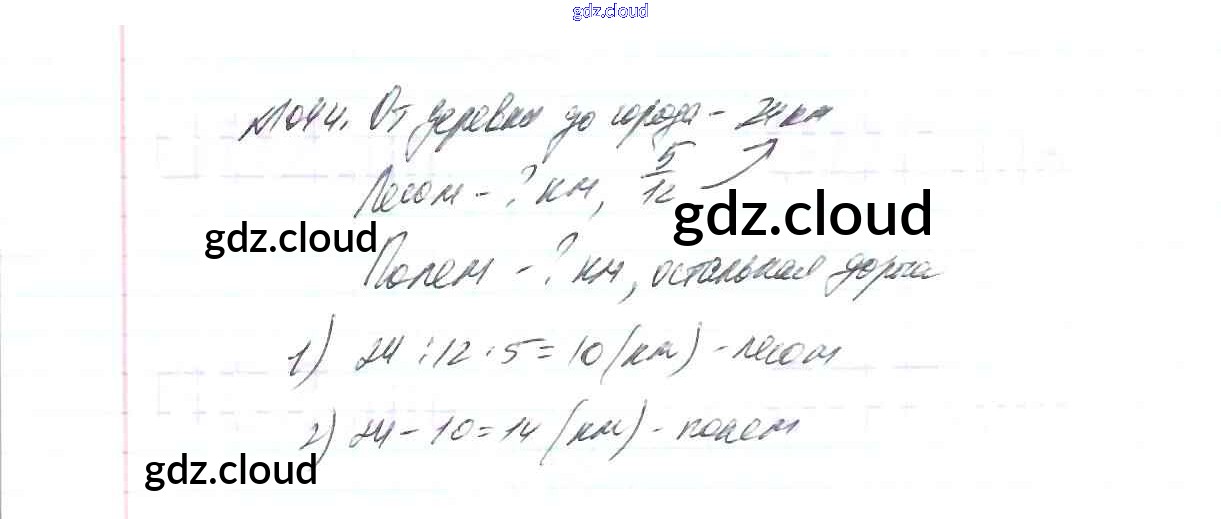 gdz.cloud
№1044. От деревни до города - 24 км
Лесом - ? км, 5/12
gdz.cloud
gdz.cloud
Полем - ? км, остальная дорога
1) 24 : 12 · 5 = 10 (км) - лесом
2) 24 - 10 = 14 (км) - полем
gdz.cloud